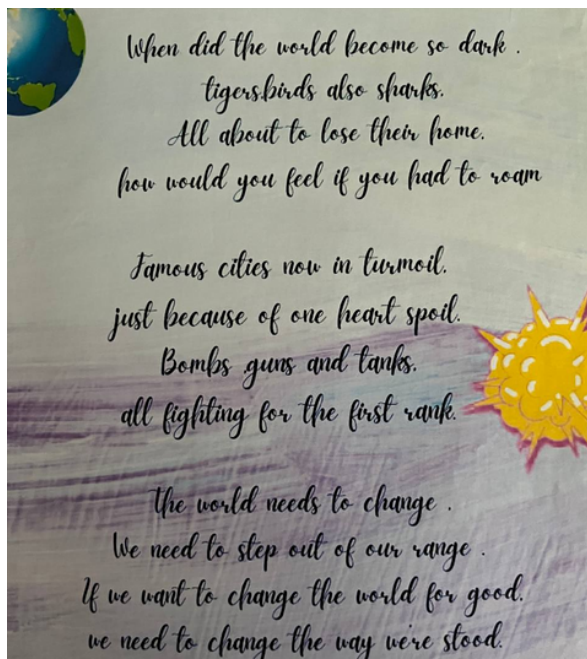 When did the world become so dark .
tigers.birds also sharks.
All about to lose their home.
how would you feel if you had to roam
Famous cities now in turmoil.
just because of one heart spoil.
Bombs guns and tanks.
all fighting for the first rank.
the world needs to change .
We need to step out of our range .
If we want to change the world for good.
we need to change the way we're stood.